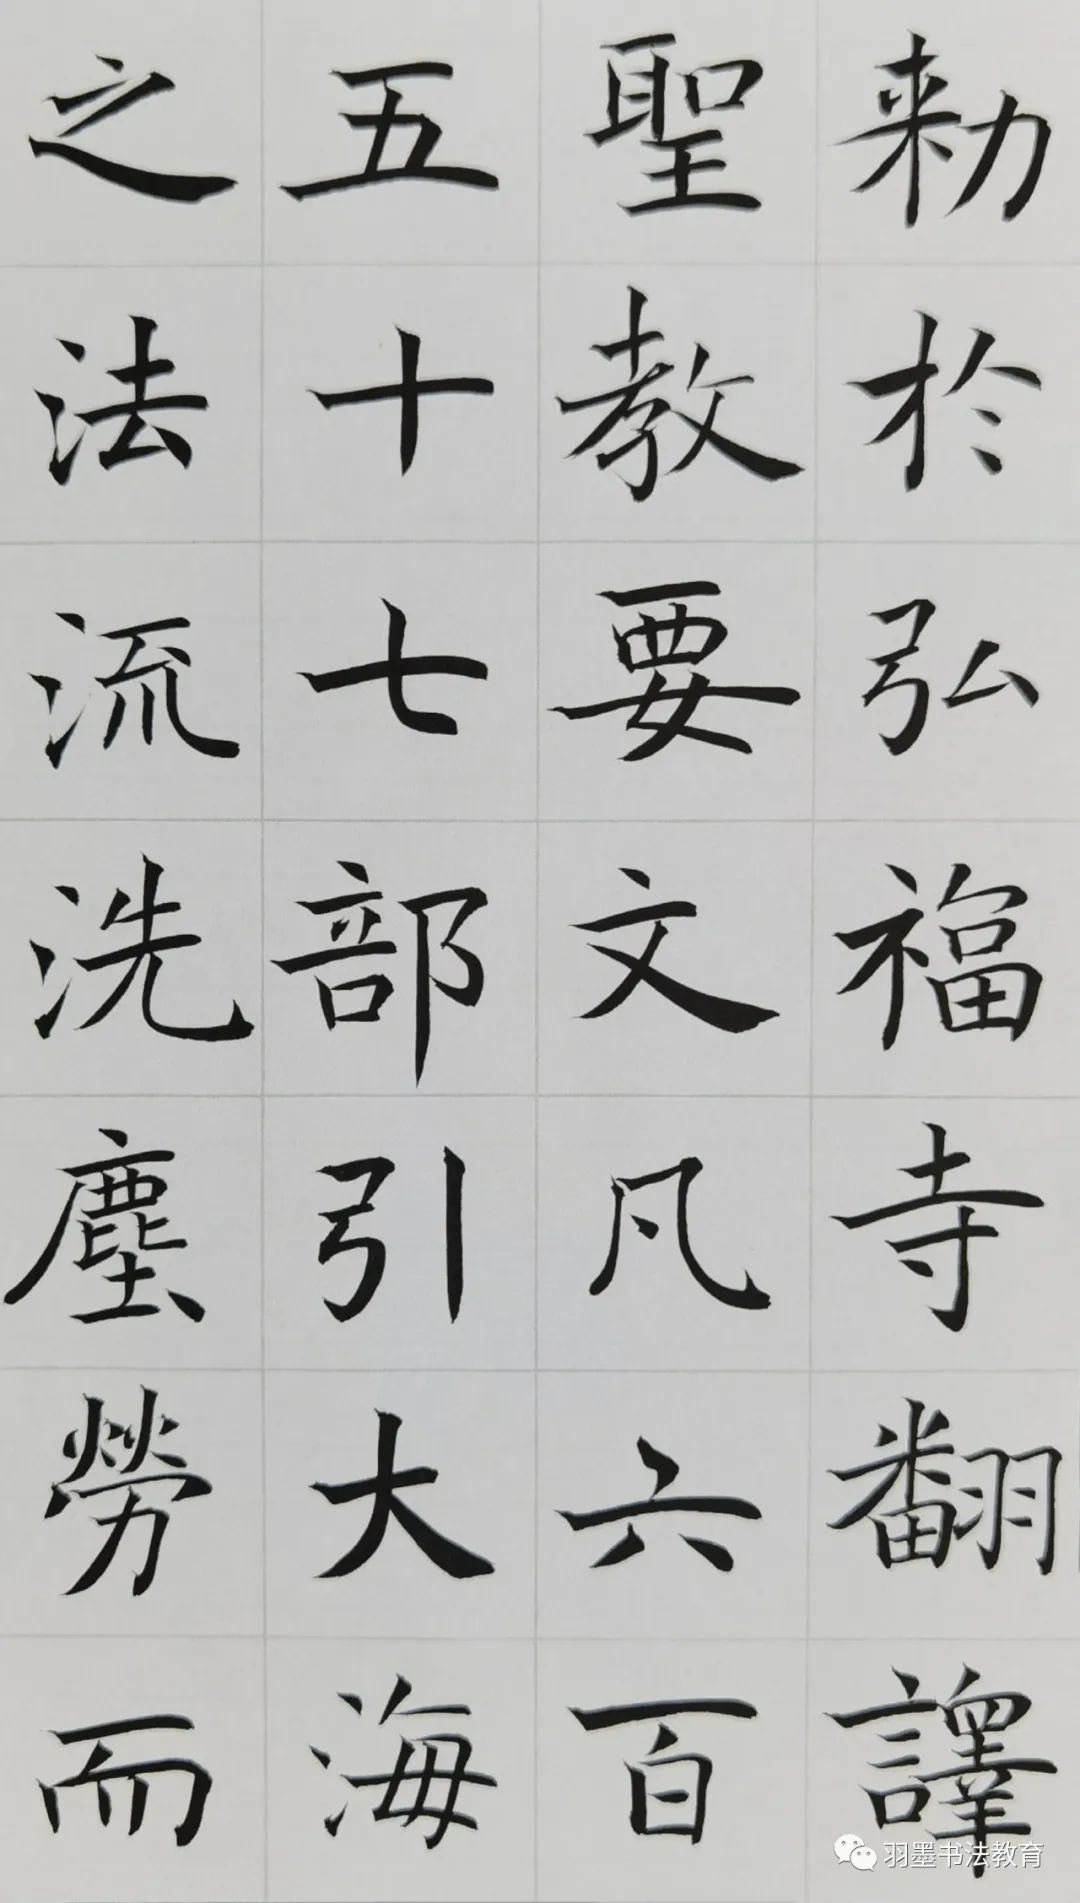 勅於弘福寺翻譯
聖教要文凡六百
五十七部引大海
之法流洗塵勞而
羽墨书法教育